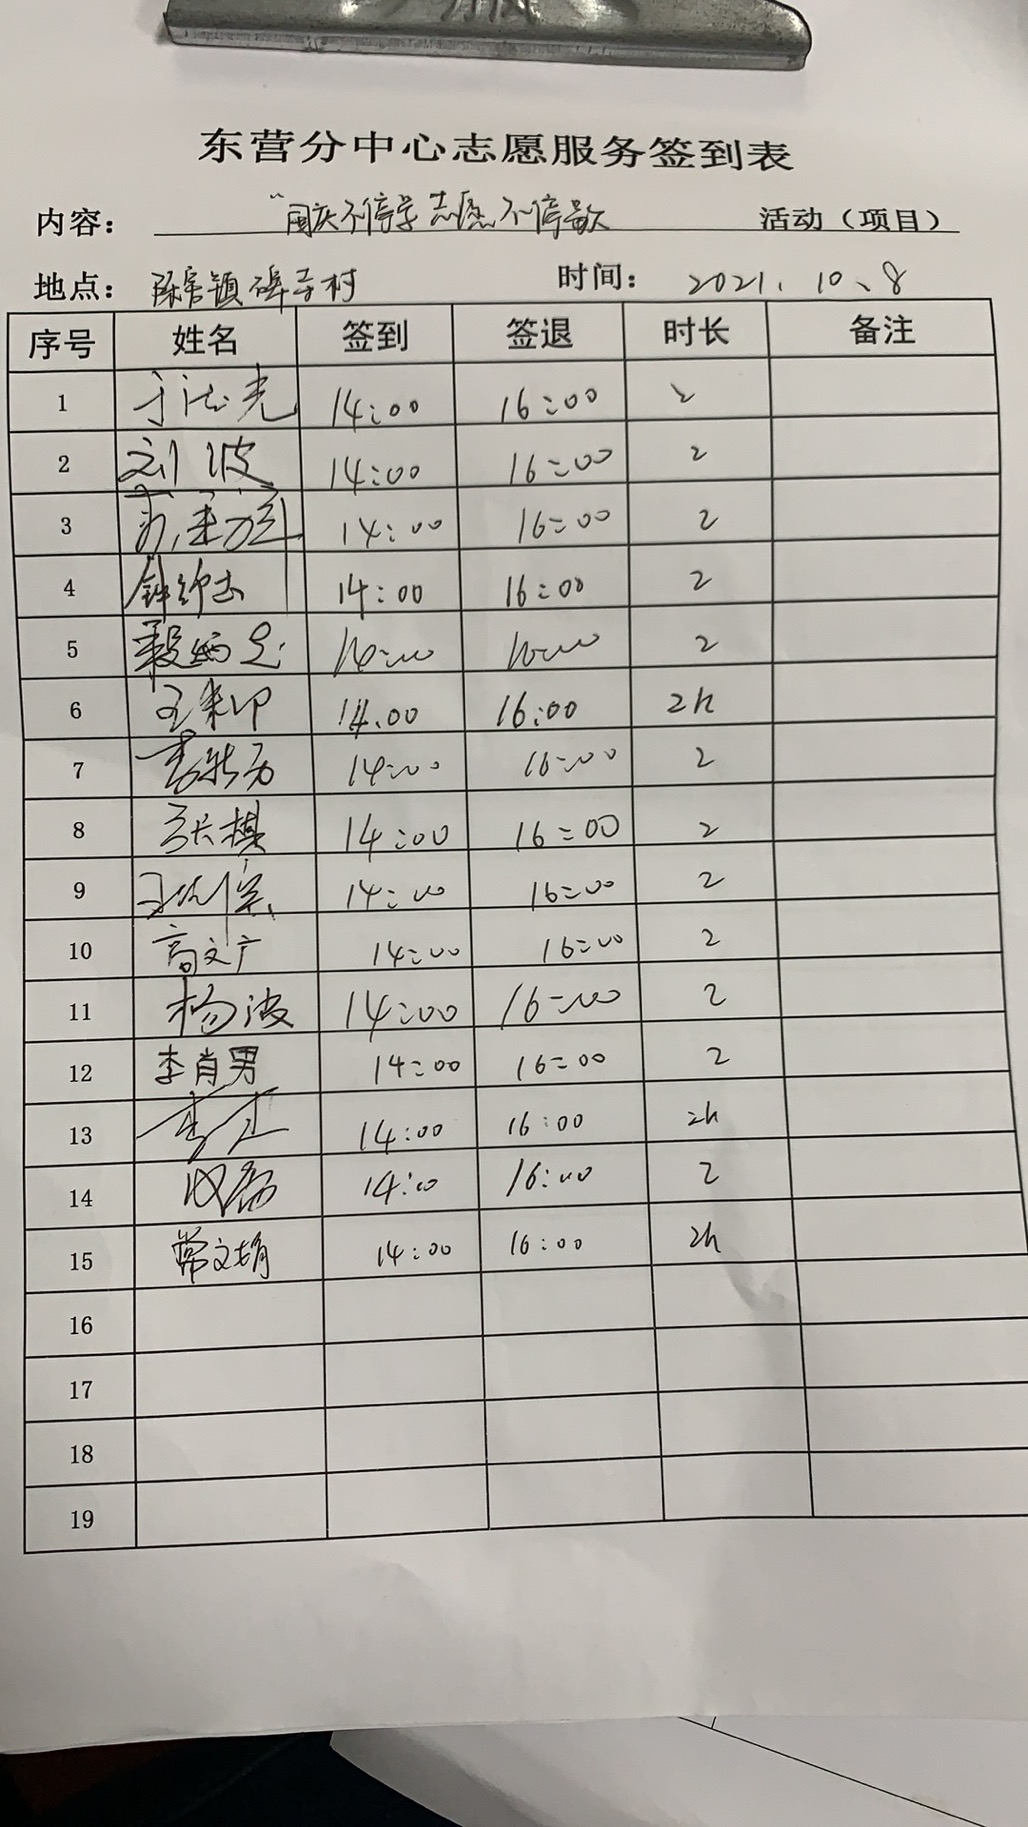 东营分中心志愿服务签到表
内容： “国庆不停学 志愿不停歇 活动（项目）
地点： 陈官镇碑寺村 时间： 2021.10、8
序号 姓名 签到 签退 时长 备注
1 14:00 16:00 2
2 刘波 14:00 16:00 2
3 14:00 16:00 2
4 14:00 16:00 2
5 2
6 14.00 16:00 2h
7 14:00 16:00 2
8 张棋 14:00 16:00 2
9 14:00 16:00 2
10 高文广 14:00 16:00 2
11 杨波 14:00 16:00 2
12 李肖男 14:00 16:00 2
13 14:00 16:00 2h
14 14:00 16:00 2
15 常文娟 14:00 16:00 2h
16
17
18
19